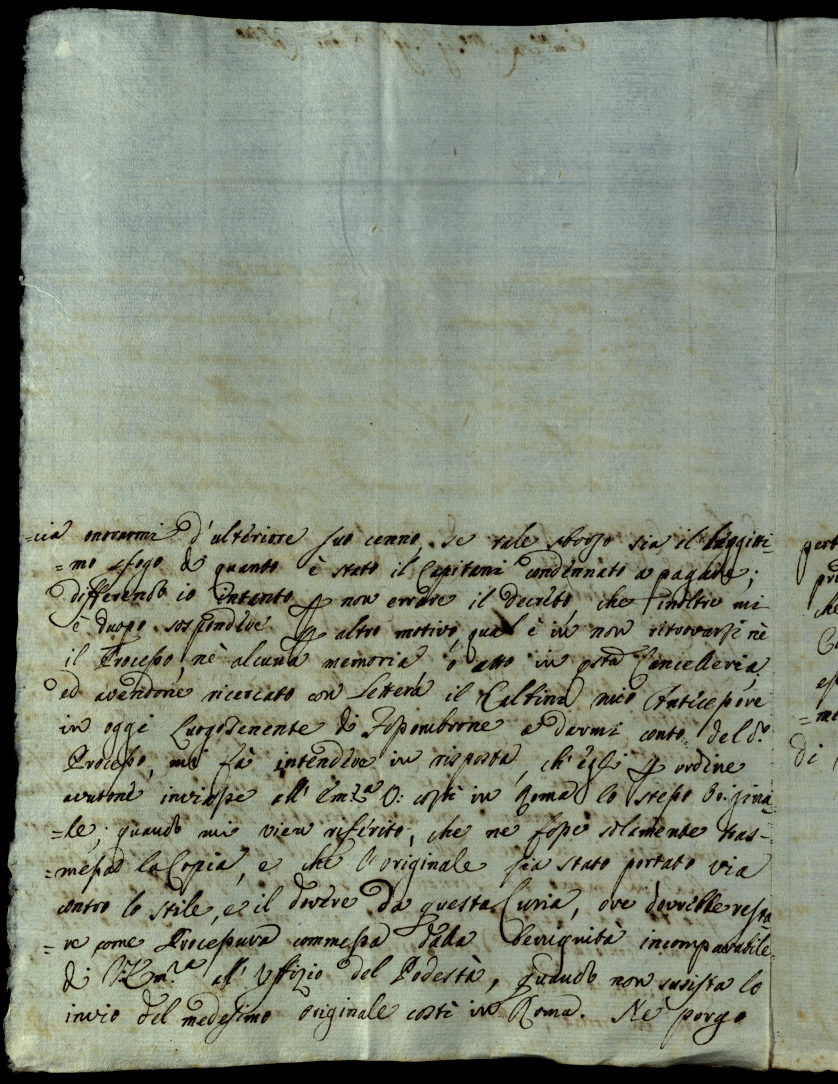 =cia onorarmi d'ulteriore suo cenno, se tale sborso sia il leggitti-
=mo sfogo di quanto è stato il Capitani condennato a pagare;
differendo io intanto p non errare il Decreto, che inoltre mi
è duopo sospendere p altro motivo, qual è in non ritrovarsi nè
il Processo, nè alcuna memoria o atto in qsta Cancelleria,
ed avendone ricercato con Lettera il Caltina mio Antecessore
in oggi Luogotenente di Fossombrone a darmi conto del do
Processo, mi fà intendere in risposta, ch'egli p ordine
avutone inviasse all' Emza V: costì in Roma lo stesso Origina-
=le, quando mi vien riferito, che ne fosse solamente tras-
=messa la Copia, e che l'originale sia stato portato via
contro lo stile, e il dovere da questa Curia, ove dovrebbe resta-
=re come Processura commessa dalla benignità incomparabile
di V: Emza all' Uffizio del Podestà, quando non susista lo
invio del medesimo Originale costì in Roma. Ne porgo
di